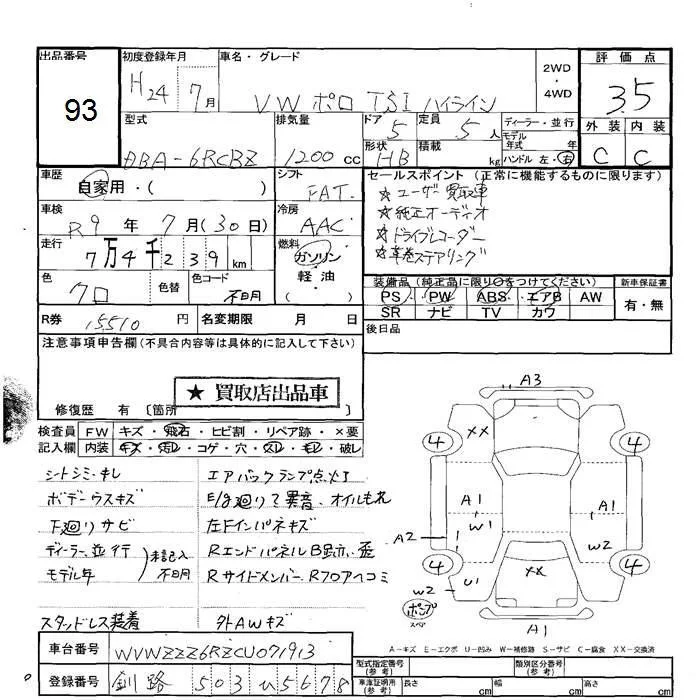 出品番号
93
初度登録年月
H24 7月
車名・グレード
VW ポロ TSI ハイライン
2WD
・
4WD
評価点
3.5
外装 内装
C C
型式
ABA-6RCBZ
排気量
1200 cc
ドア 5
定員 5人
形状 HB
積載 kg
ディーラー・並行
モデル年式 年
ハンドル 左・右
車歴
自家用・( )
シフト
FAT.
車検
R9年7月(30日)
冷房
AAC
走行
7万4千239km
燃料
ガソリン
軽油
( )
色
クロ
色替
色コード
不明
R券 15510円
名変期限 月 日
セールスポイント(正常に機能するものに限ります)
☆ユーザー買取車
☆純正オーディオ
☆ドライブレコーダー
☆革巻ステアリング
装備品(純正品に限り○をつけてください)
PS PW ABS エアB AW
SR ナビ TV カワ
新車保証書
有・無
後日品
注意事項申告欄(不具合内容等は具体的に記入して下さい)
★買取店出品車
修復歴 有 〔箇所
検査員記入欄
FW キズ・飛石・ヒビ割・リペア跡・×要
内装 キズ・汚レ・コゲ・穴・スレ・モレ・破レ
シートシミ・キレ
ボデーウスキズ
下廻りサビ
ディーラー、並行
モデル年
未記入
不明
スタッドレス装着
エアバックランプ点灯
E/g廻りで異音、オイルもれ
左Fインパネキズ
Rエンドパネル B跡ホ、歪
Rサイドメンバー、Rフロアヘコミ
外AWキズ
A3
XX
4 4
A1
W1
A1
A2
W2
4 4
W2
U1
XX
ポンプ
スペア
A1
A-キズ E-エクボ U-凹み W-補修跡 S-サビ C-腐食 XX-交換済
車台番号
WVWZZZ6RZCU071913
登録番号
釧路 503 ひ5678
型式指定番号(参考)
類別区分番号(参考)
車庫証明用(参考)
長さ cm
幅 cm
高さ cm